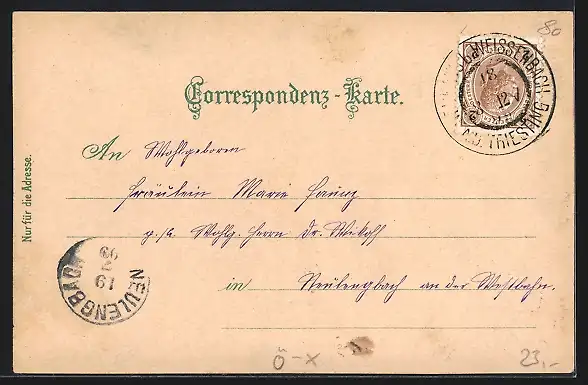 80
WEISSENBACH
18 12-1
A.D. TRIESTING
Correspondenz-Karte.
An Wohlgeboren
Fräulein Marie
p. a. Wohlg. Herrn Dr.
in Neulengbach an der Westbahn.
Nur für die Adresse.
NEULENGBACH
19 7 99
Ö-X
23,-